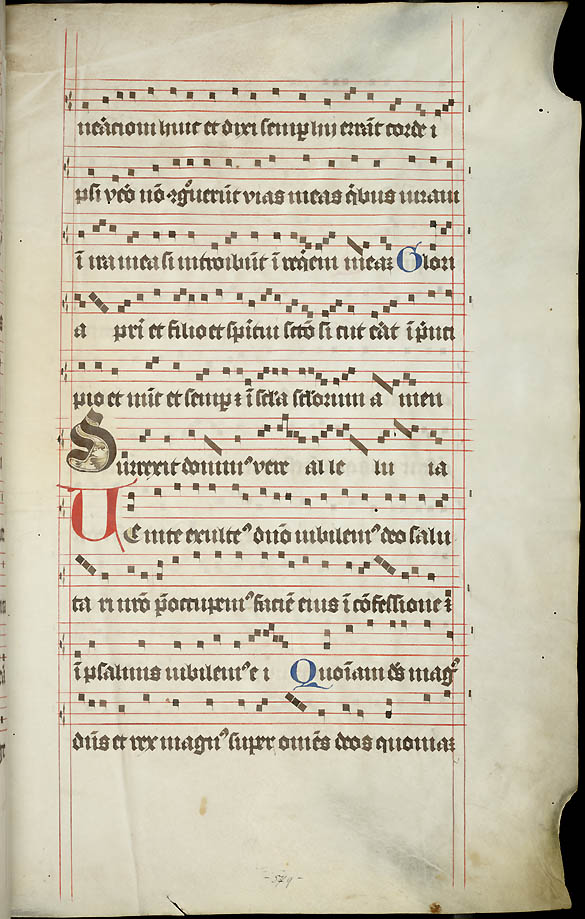 neacioni huic et dixi semp hii errāt corde i
psi vēo nō ꝯgͦuerūt vias meas qͥbus iuraui
ī ira mea si introibūt ī reqͥem meaꝫ Glori
a pr̄i et filio et spiritui sctō si cut erāt ī pͥnci
pio et nūc et semp ⁊ ī scl̄a scl̄orum a men
Surrexit dominꝰ vere al le lu ia
UEnite exultēꝰ dn̄o iubilemꝰ deo salu
ta ri nr̄o p̄occupemꝰ faciē eius ī cōfessione ⁊
ī psalmis iubilemꝰ e i Quoīam ds̄ magꝰ
dn̄s et rex magnꝰ super omēs deos quoniaꝫ
-579-